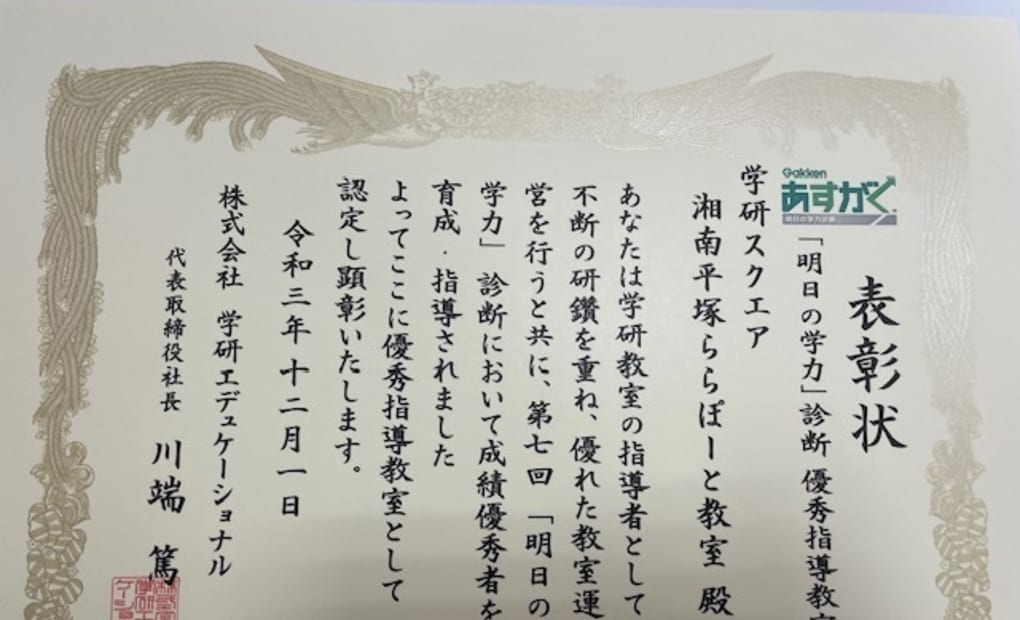 表彰状
Gakken
あすがく
明日の学力診断
「明日の学力」診断 優秀指導教室
学研スクエア
湘南平塚ららぽーと教室 殿
あなたは学研教室の指導者として
不断の研鑽を重ね、優れた教室運
営を行うと共に、第七回「明日の
学力」診断において成績優秀者を
育成・指導されました
よってここに優秀指導教室として
認定し顕彰いたします。
令和三年十二月一日
株式会社 学研エデュケーショナル
代表取締役社長 川端 篤